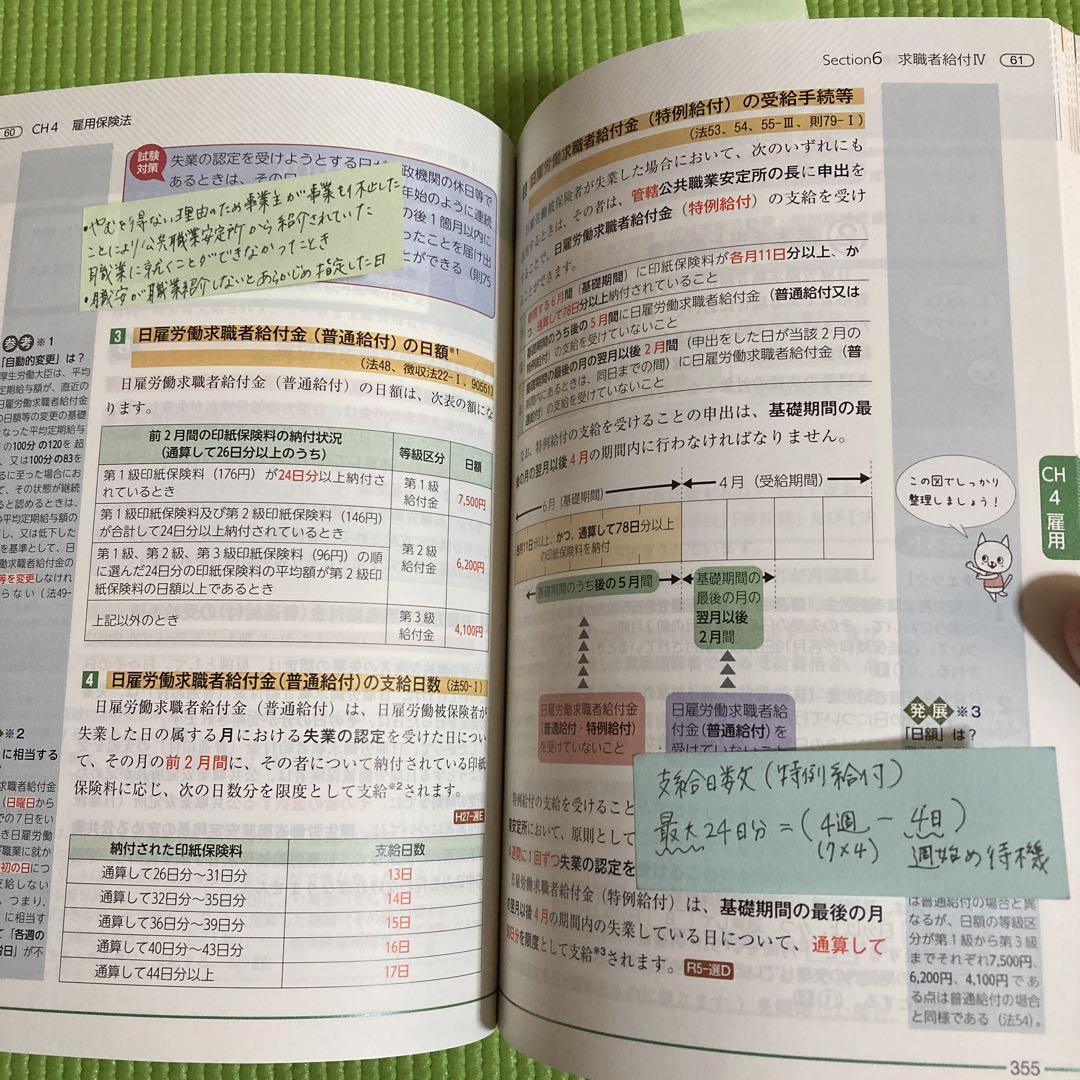 60 CH4 雇用保険法
試験
対策
失業の認定を受けようとする日が 政機関の休日等で
あるときは、その日 年始のように連続
の後1箇月以内に
ったことを届け出
とができる(則75
・やむを得ない理由のため事業主が事業を休止した
ことにより公共職業安定所から紹介されていた
職業に就くことができなかったとき
・職安が職業紹介しないとあらかじめ指定した日
3 日雇労働求職者給付金(普通給付)の日額※1
(法48、徴収法22-Ⅰ、90551)
日雇労働求職者給付金(普通給付)の日額は、次表の額にな
ります。
前2月間の印紙保険料の納付状況
(通算して26日分以上のうち)
等級区分 日額
第1級印紙保険料(176円)が24日分以上納付さ
れているとき
第1級
給付金
7,500円
第1級印紙保険料及び第2級印紙保険料(146円)
が合計して24日分以上納付されているとき
第1級、第2級、第3級印紙保険料(96円)の順
に選んだ24日分の印紙保険料の平均額が第2級印
紙保険料の日額以上であるとき
第2級
給付金
6,200円
上記以外のとき
第3級
給付金
4,100円
4 日雇労働求職者給付金(普通給付)の支給日数(法50-Ⅰ)
日雇労働求職者給付金(普通給付)は、日雇労働被保険者が
失業した日の属する月における失業の認定を受けた日につい
て、その月の前2月間に、その者について納付されている印紙
保険料に応じ、次の日数分を限度として支給※2されます。
H27-選E
納付された印紙保険料 支給日数
通算して26日分~31日分 13日
通算して32日分~35日分 14日
通算して36日分~39日分 15日
通算して40日分~43日分 16日
通算して44日分以上 17日
参考 ※1
「自動的変更」は?
厚生労働大臣は、平均
定期給与額が、直近の
日雇労働求職者給付金
の日額等の変更の基礎
となった平均定期給与
の100分の120を超
、又は100分の83を
るに至った場合にお
て、その状態が継続
と認めるときは、
の平均定期給与額の
し、又は低下した
を基準として、日
働求職者給付金の
等を変更しなけれ
らない(法49-
※2
に相当する
求職者給付
(日曜日から
での7日をい
き日雇労働
が職業に就か
初の日につ
支給しない
つまり、
に相当す
て「各週の
日」が不
Section6 求職者給付Ⅳ 61
日雇労働求職者給付金(特例給付)の受給手続等
(法53、54、55-Ⅲ、則79-Ⅰ)
日雇労働被保険者が失業した場合において、次のいずれにも
該当するときは、その者は、管轄公共職業安定所の長に申出を
することで、日雇労働求職者給付金(特例給付)の支給を受け
ることができます。
継続する6月間(基礎期間)に印紙保険料が各月11日分以上、か
つ、通算して78日分以上納付されていること
基礎期間のうち後の5月間に日雇労働求職者給付金(普通給付又は
特例給付)の支給を受けていないこと
基礎期間の最後の月の翌月以後2月間(申出をした日が当該2月の
期間内にあるときは、同日までの間)に日雇労働求職者給付金(普
通給付)の支給を受けていないこと
なお、特例給付の支給を受けることの申出は、基礎期間の最
後の月の翌月以後4月の期間内に行わなければなりません。
6月(基礎期間) 4月(受給期間)
各月11日分以上、かつ、通算して78日分以上
の印紙保険料を納付
基礎期間のうち後の5月間
基礎期間の
最後の月の
翌月以後
2月間
日雇労働求職者給付金
(普通給付・特例給付)
を受けていないこと
日雇労働求職者給
付金(普通給付)を
受けていないこと
この図でしっかり
整理しましょう!
CH
4
雇用
特例給付の支給を受けること
業安定所において、原則として
4週間に1回ずつ失業の認定を
日雇労働求職者給付金(特例給付)は、基礎期間の最後の月
の翌月以後4月の期間内の失業している日について、通算して
60日分を限度として支給※3されます。 R5-選D
支給日数(特例給付)
最大24日分=(4週-4日)
(7×4) 週始め待機
発展 ※3
「日額」は?
は普通給付の場合と異
なるが、日額の等級区
分が第1級から第3級
までそれぞれ7,500円、
6,200円、4,100円であ
る点は普通給付の場合
と同様である(法54)。
355